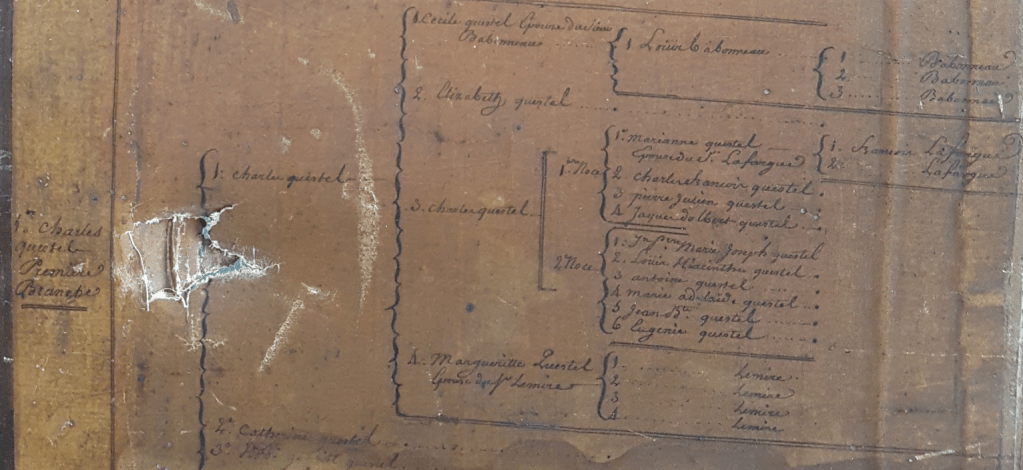 1. Cecile questel Epouse du
Babonneau
1 Loüis Babonneau
1 Babonneau
2. Babonneau
3 Babonneau
2. Elizabeth questel
1. charle questel
3. charle questel
1re Noce
1. marianne questel
Epouse du Sr. Lafargue
1. francois Lafargue
2. Lafargue
2. charles francois questel
3 pierre Julien questel
4 Jaques questel
2 Noce
1. Marie Joseph questel
2. Loüis Hiacinthe questel
3 antoine questel
4 marie adelaide questel
5 Jean Bte questel
6 Eugenie questel
1er Charles
questel
Premiere
Branche
4. Margueritte Questel
Epouse du Sr Lemire
1. Lemire
2 Lemire
3 Lemire
4. Lemire
2. Catherine questel
3. questel